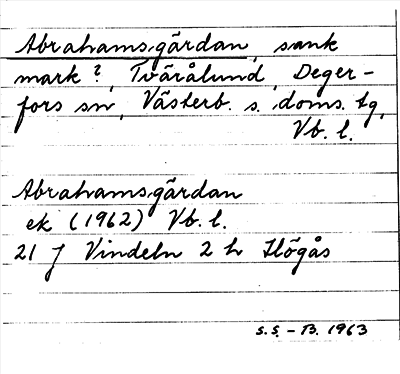 Abrahams,gärdan, sank
mark?, Tvärålund, Deger-
fors sn, Västerb. s. doms. tg,
Vb. l.
Abrahams,gärdan
ek (1962) Vb. l.
21 J Vindeln 2 h Högås
S.S. - B. 1963